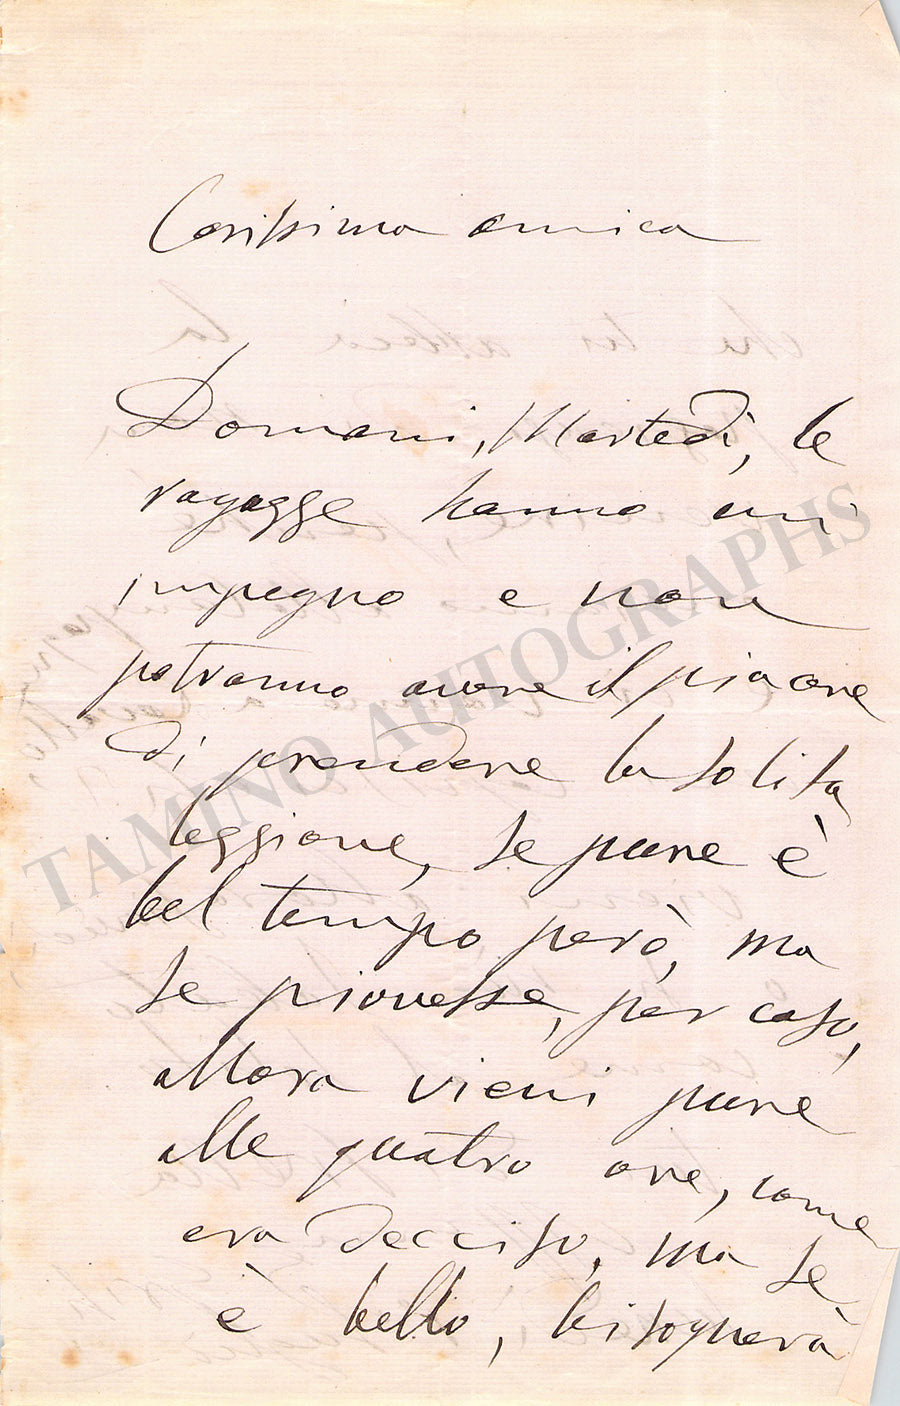 Carissima amica
Domani, Martedì, le
ragazze hanno un'
impegno e non
potranno avere il piacere
di prendere la solita
leggione, se pure è
bel tempo però, ma
se piovesse, per caso,
allora vieni pure
alle quatro ore, come
era decciso, ma se
è bello, bisognerà
TAMINO AUTOGRAPHS